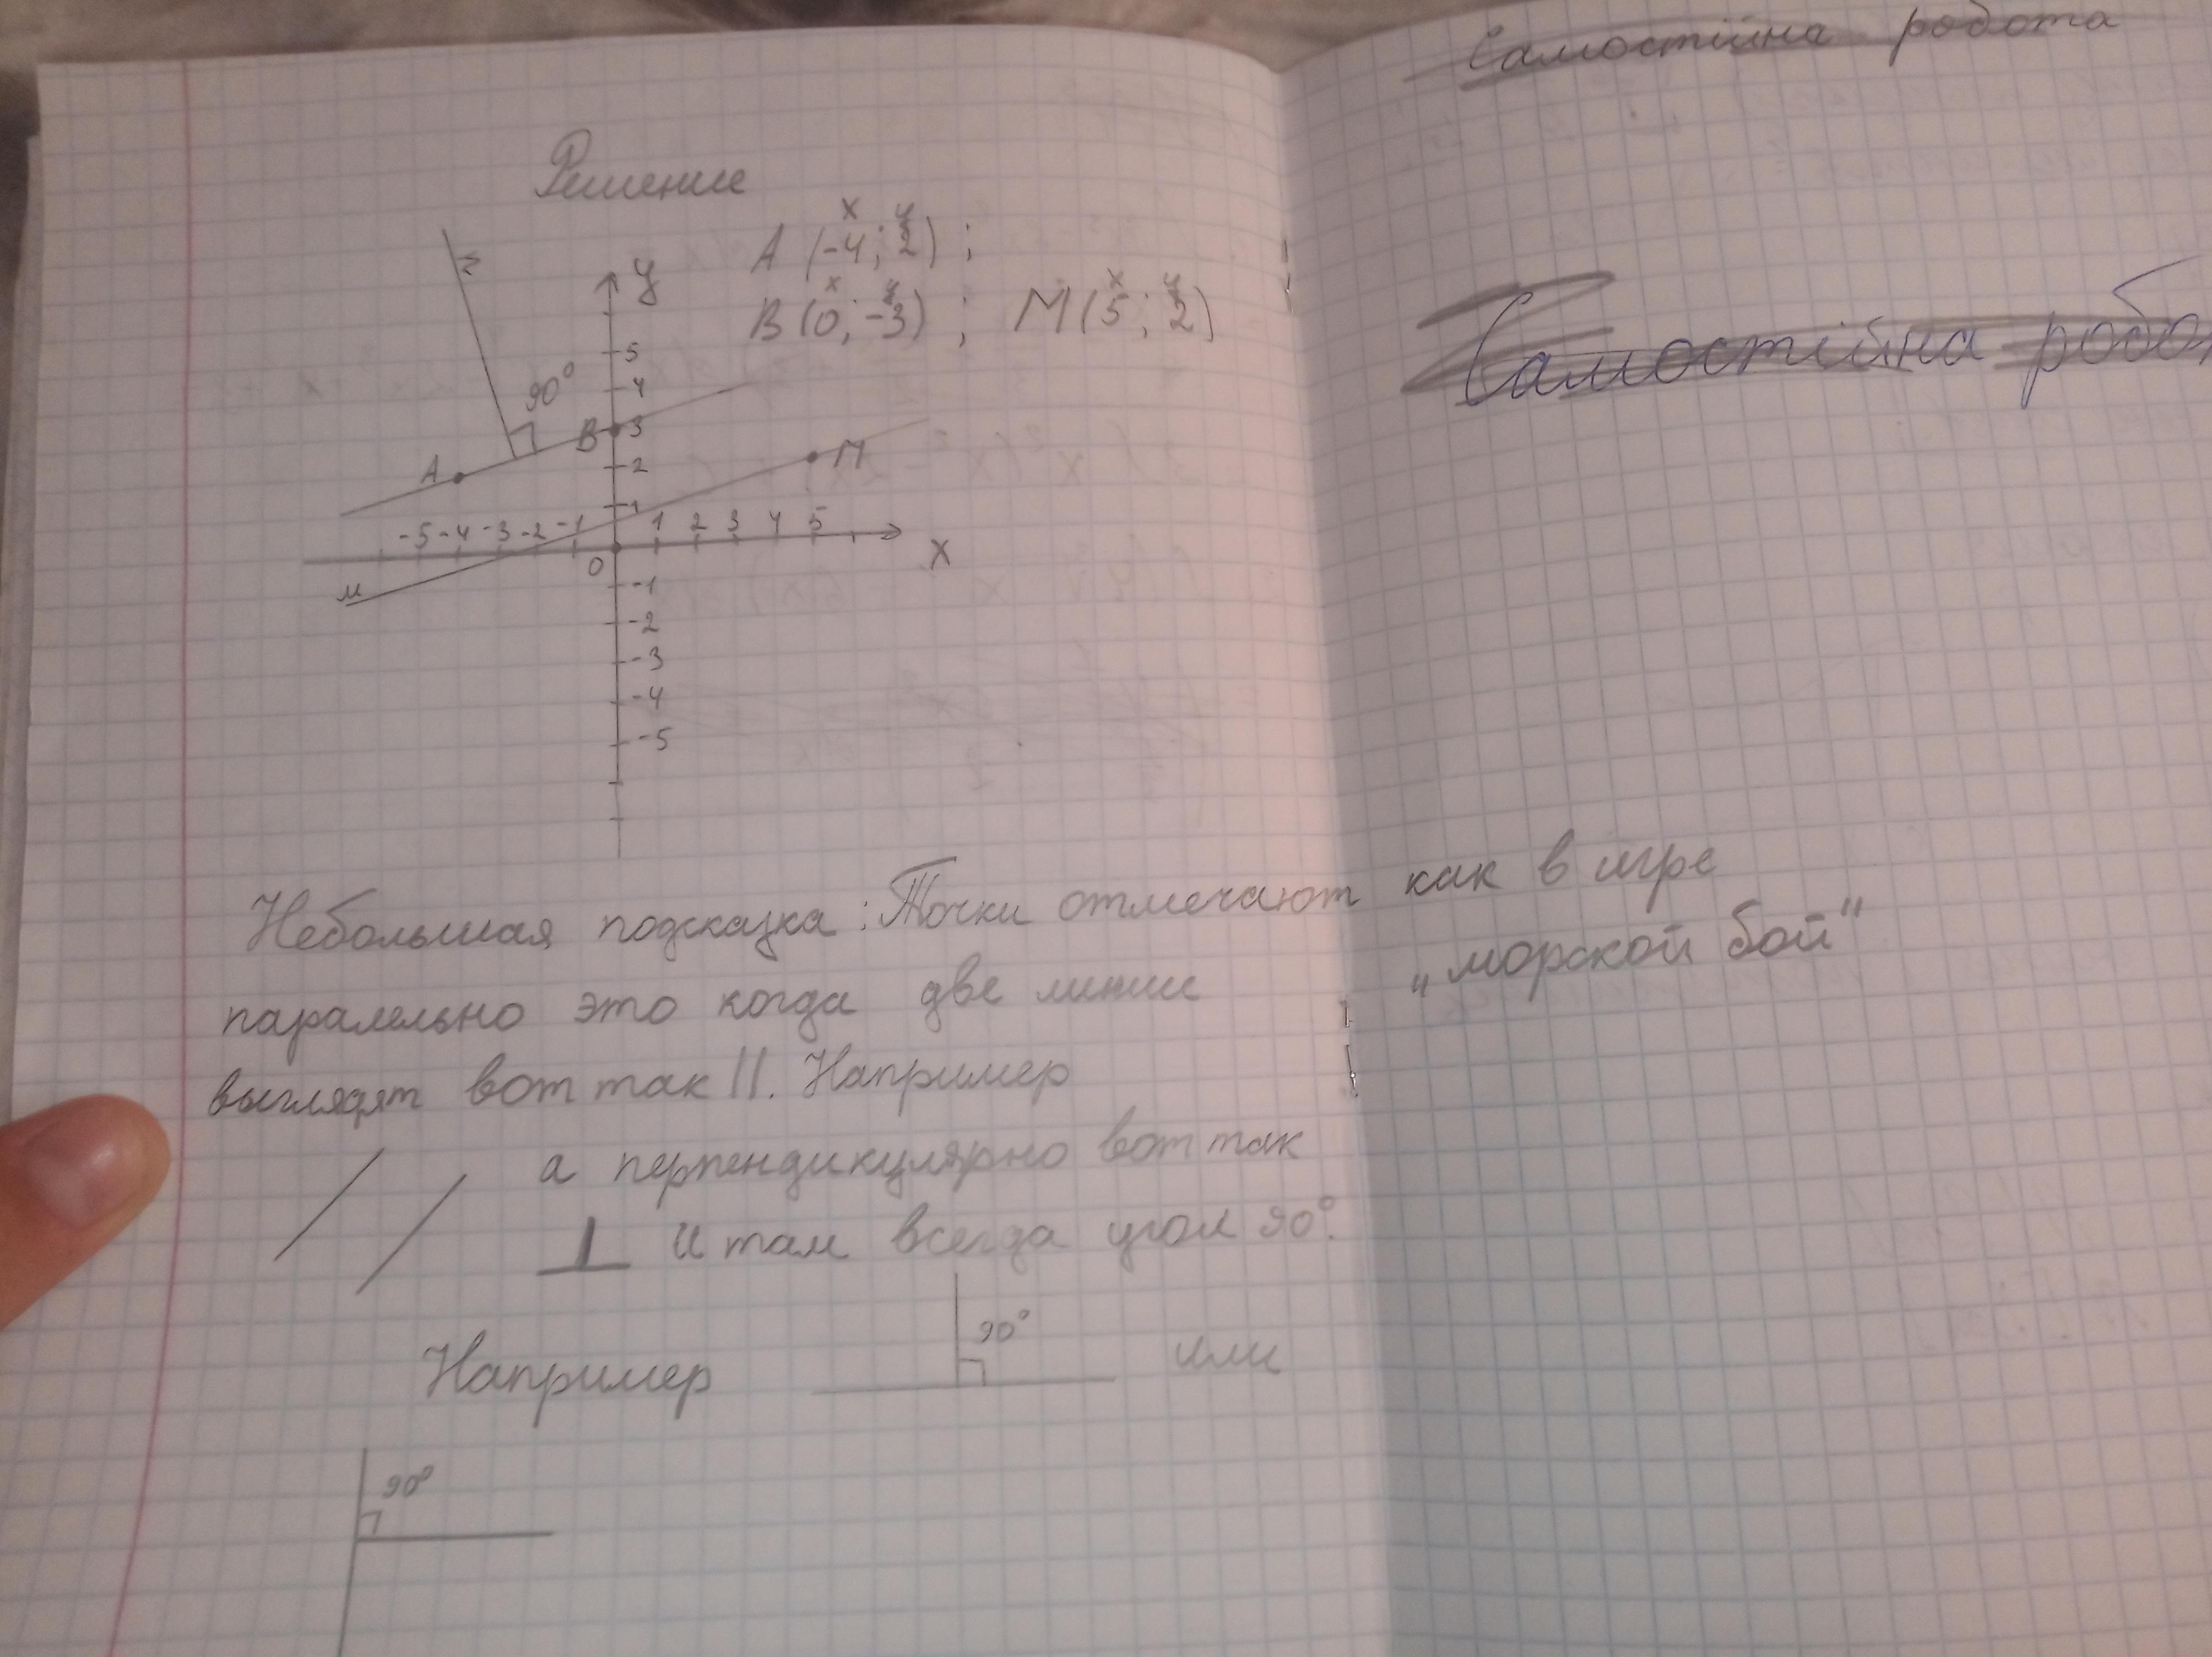 Самостійна робота
Решение
x y
A (-4; 2) ;
x y x y
B (0; -3) ; M (5; 2)
Самостійна робо
y
5
4
90°
B 3
A 2 M
1
-5 -4 -3 -2 -1 1 2 3 4 5
0 x
м
-1
-2
-3
-4
-5
Небольшая подсказка: Точки отмечают как в игре
„морской бой"
паралельно это когда две линии
выглядят вот так ||. Например
а перпендикулярно вот так
⊥ и там всегда угол 90°.
Например 90° или
90°